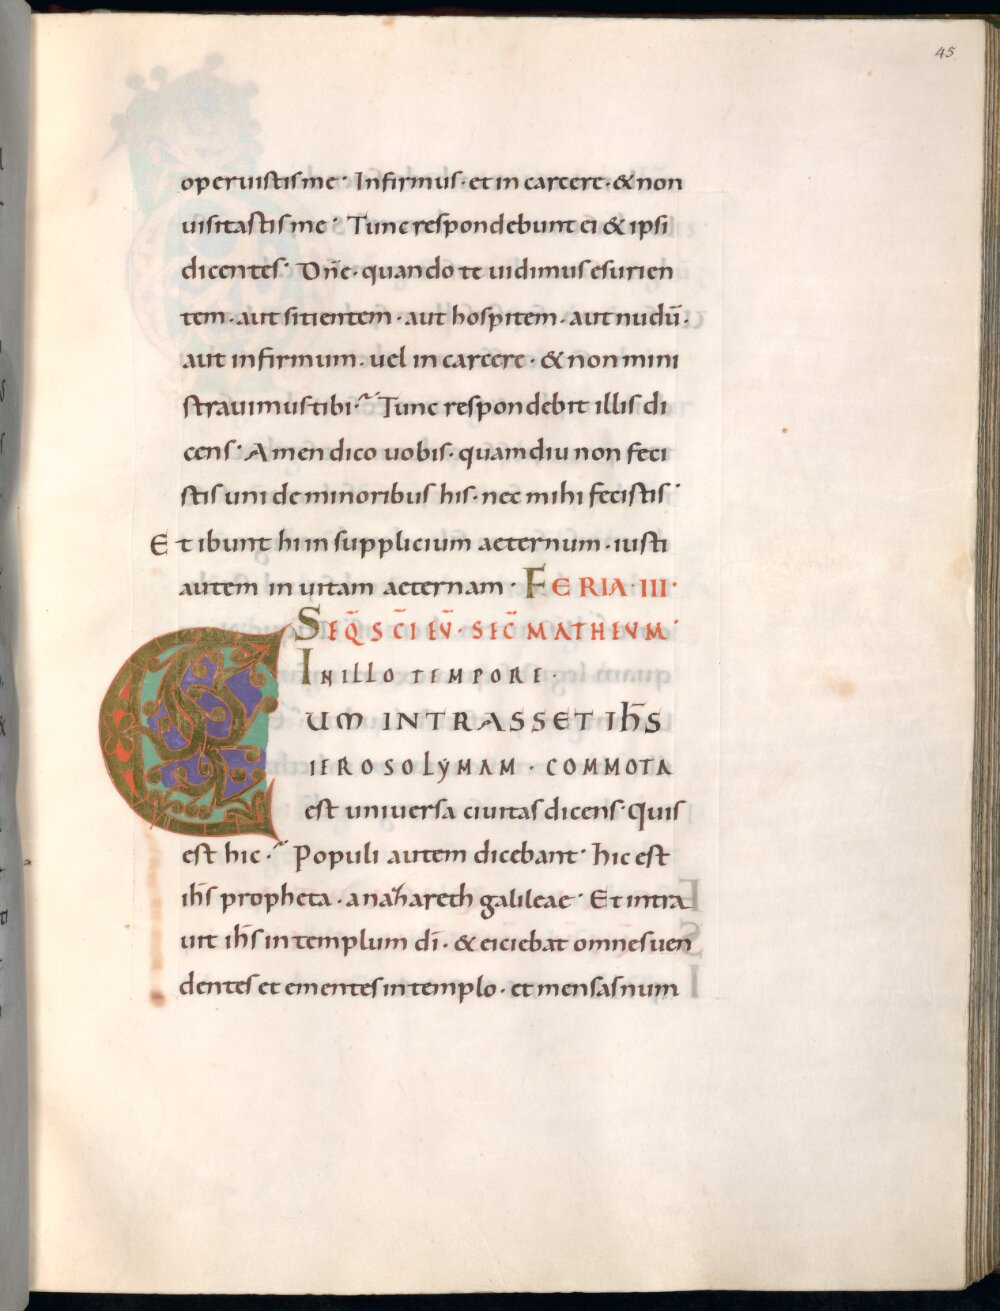 45
operuistis me · Infirmus · et in carcere · & non
uisitastis me · Tunc respondebunt ei & ipsi
dicentes · Dn̄e · quando te uidimus esurien
tem · aut sitientem · aut hospitem · aut nudū ·
aut infirmum · uel in carcere · & non mini
strauimus tibi · Tunc respondebit illis di
cens · Amen dico uobis · quamdiu non feci
stis uni de minoribus his · nec mihi fecistis ·
Et ibunt hi in supplicium aeternum · iusti
autem in uitam aeternam · FERIA III ·
SEQ̄ S C̄I EV̄ · SEC̄ MATHEVM ·
IN ILLO TEMPORE ·
CUM INTRASSET IH̄S
IEROSOLYMAM · COMMOTA
est uniuersa ciuitas dicens · Quis
est hic · Populi autem dicebant · hic est
ih̄s propheta · a nazareth galileae · Et intra
uit ih̄s in templum dī · & eiciebat omnes uen
dentes et ementes in templo · et mensas num